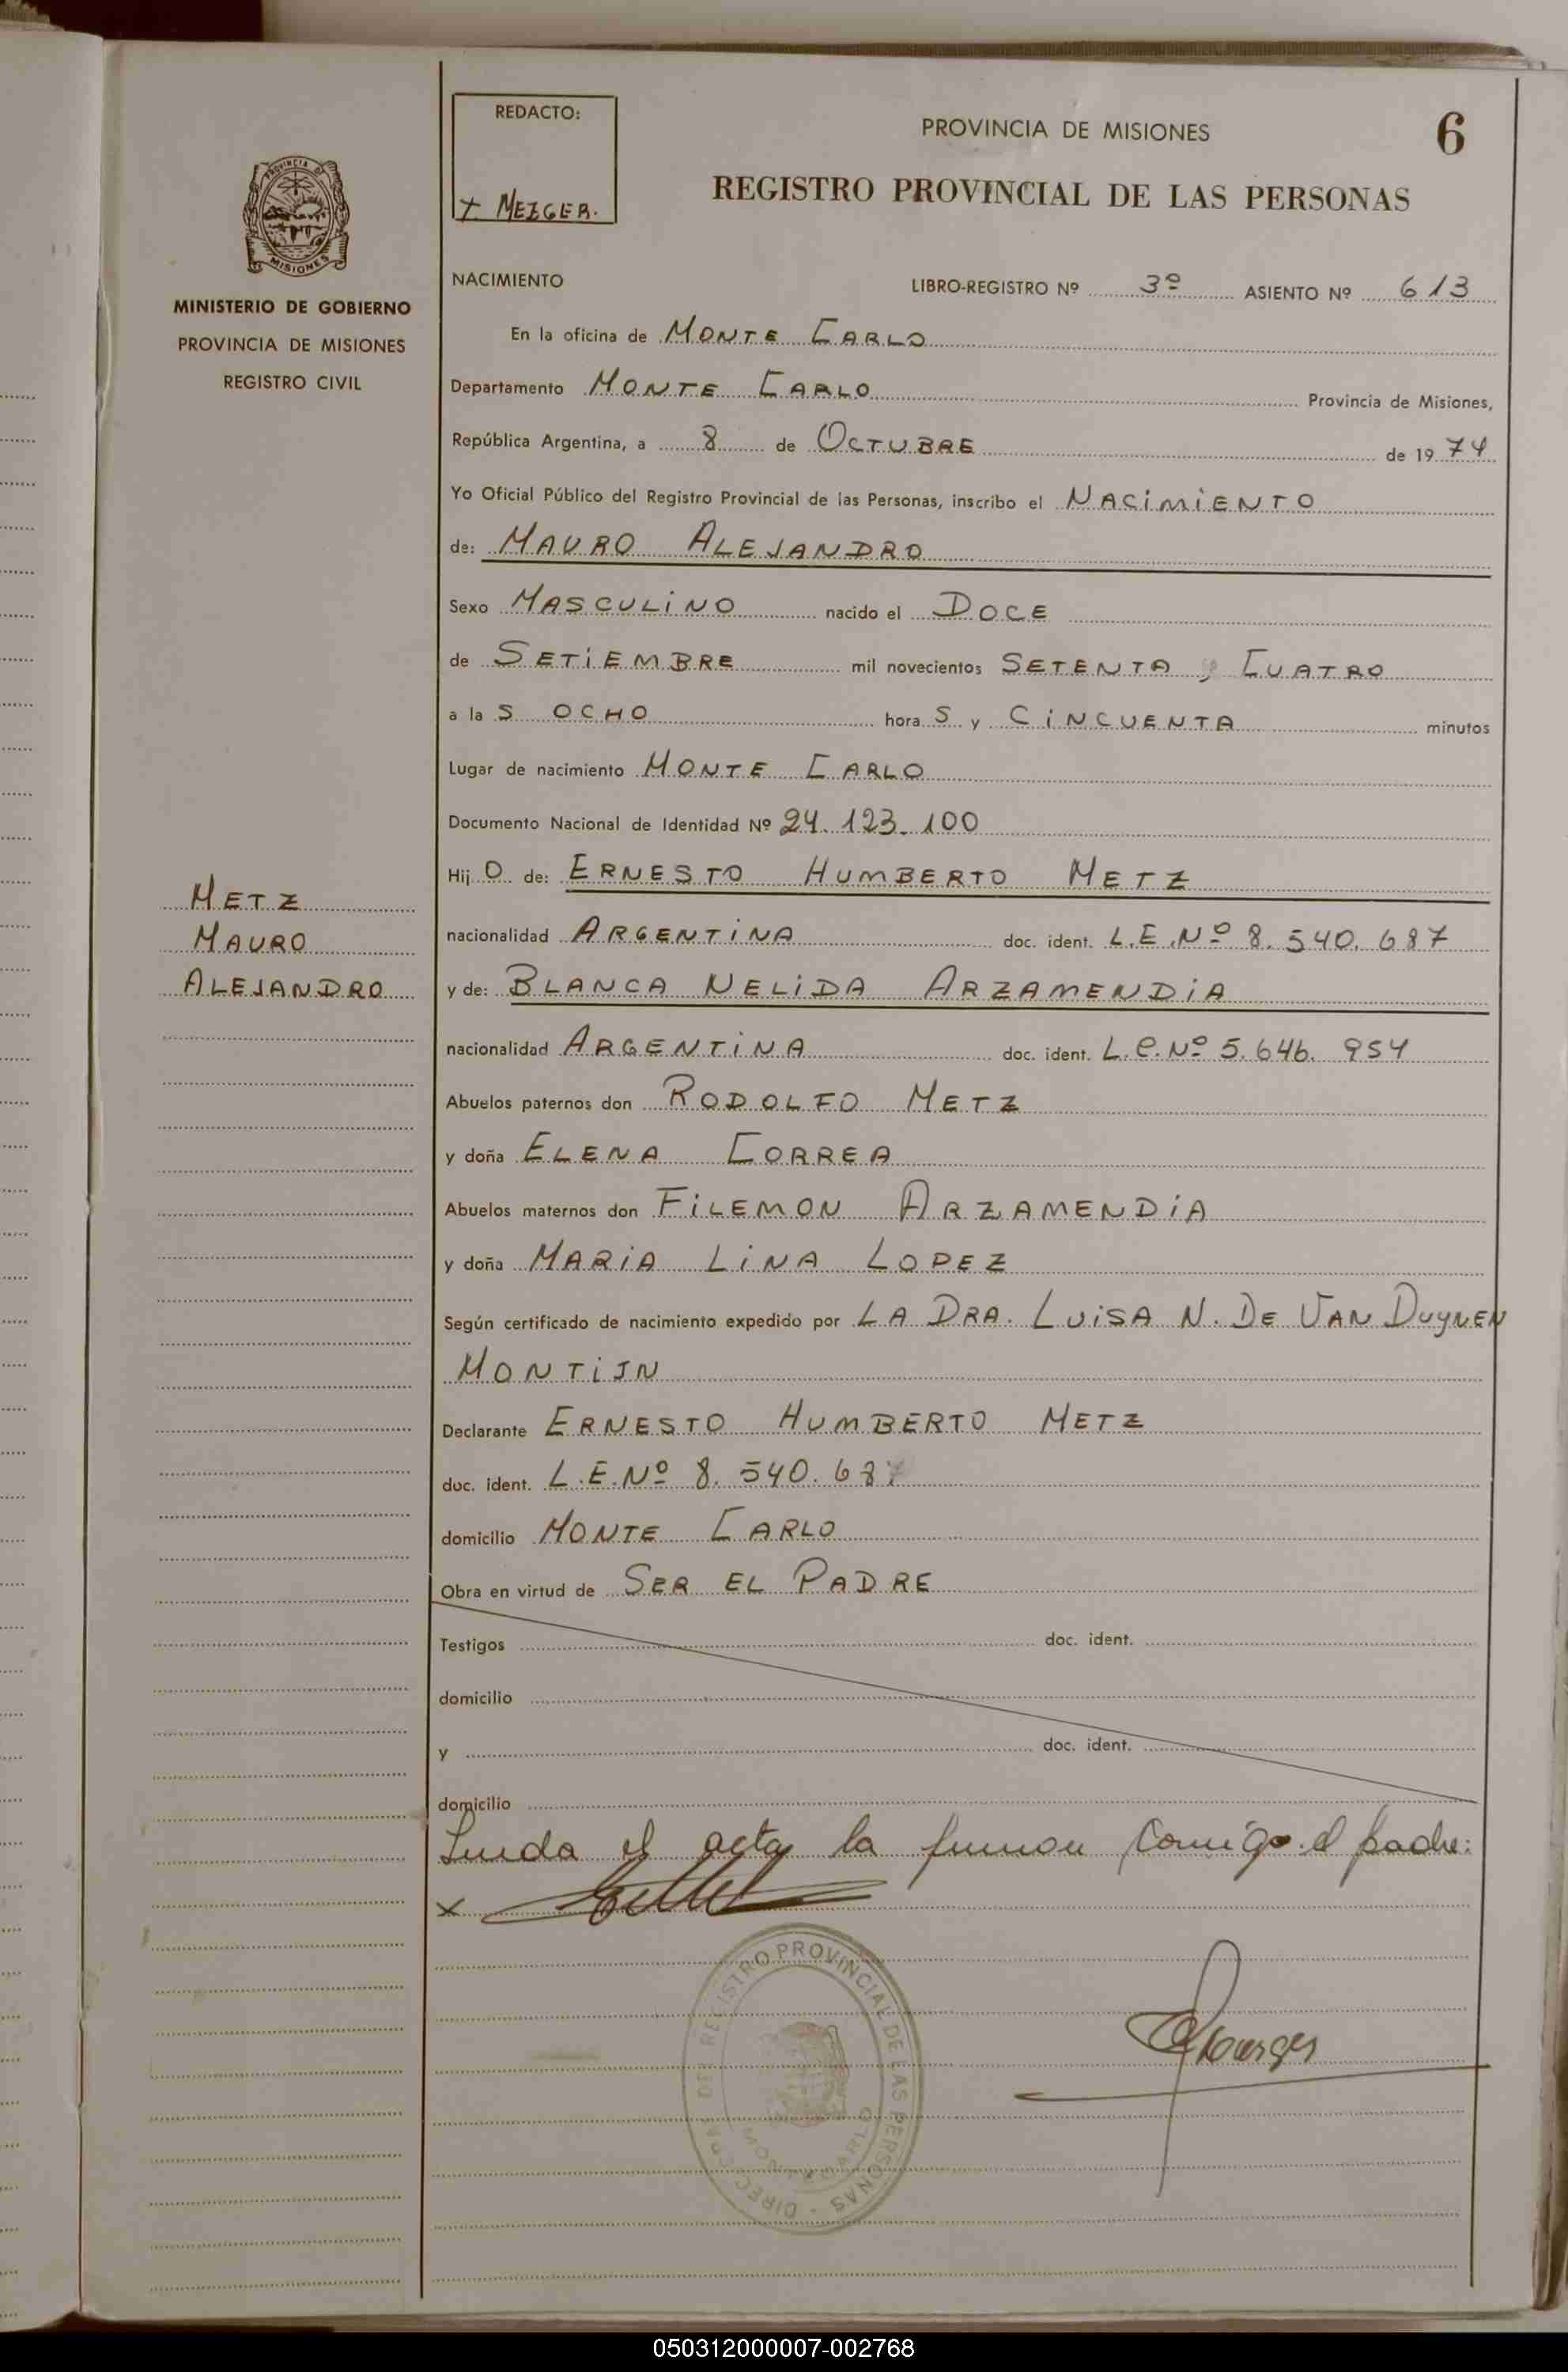 REDACTO:
+ MEZGER.
PROVINCIA DE MISIONES
6
REGISTRO PROVINCIAL DE LAS PERSONAS
PROVINCIA DE
MISIONES
MINISTERIO DE GOBIERNO
PROVINCIA DE MISIONES
REGISTRO CIVIL
NACIMIENTO LIBRO-REGISTRO Nº 3º ASIENTO Nº 613
En la oficina de MONTE CARLO
Departamento MONTE CARLO Provincia de Misiones,
República Argentina, a 8 de OCTUBRE de 19 74
Yo Oficial Público del Registro Provincial de las Personas, inscribo el NACIMIENTO
de: MAURO ALEJANDRO
Sexo MASCULINO nacido el DOCE
de SETIEMBRE mil novecientos SETENTA y CUATRO
a la S OCHO hora S y CINCUENTA minutos
Lugar de nacimiento MONTE CARLO
Documento Nacional de Identidad Nº 24.123.100
Hij O de: ERNESTO HUMBERTO METZ
METZ
MAURO
ALEJANDRO
nacionalidad ARGENTINA doc. ident. L.E.Nº 8.540.687
y de: BLANCA NELIDA ARZAMENDIA
nacionalidad ARGENTINA doc. ident. L.C.Nº 5.646.954
Abuelos paternos don RODOLFO METZ
y doña ELENA CORREA
Abuelos maternos don FILEMON ARZAMENDIA
y doña MARIA LINA LOPEZ
Según certificado de nacimiento expedido por LA DRA. LUISA N. DE VAN DUYNEN
MONTIJN
Declarante ERNESTO HUMBERTO METZ
doc. ident. L.E.Nº 8.540.687
domicilio MONTE CARLO
Obra en virtud de SER EL PADRE
Testigos doc. ident.
domicilio
y doc. ident.
domicilio
Leida el acta la firman conmigo el padre:
x
DIREC. GRAL. DEL REGISTRO PROVINCIAL DE LAS PERSONAS
MONTECARLO
050312000007-002768